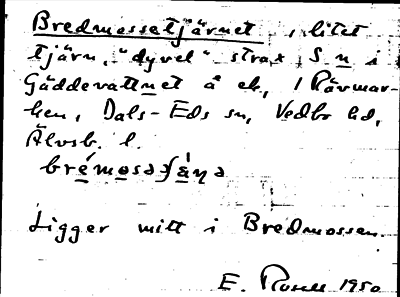 Bredmossetjärnet, litet
tjärn, "dyvel" strax S n i
Gäddevattnet å ek, i Rävmar-
ken, Dals-Eds sn, Vedbo hd,
Älvsb. l.
Ligger mitt i Bredmossen.
E. 1950